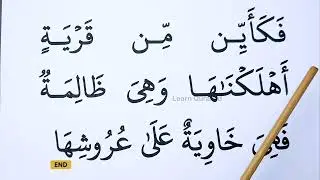 فَكَأَيِّن مِّن قَرْيَةٍ
أَهْلَكْنَاهَا وَهِىَ ظَالِمَةٌ
Learn Quran
فَهِىَ خَاوِيَةٌ عَلَىٰ عُرُوشِهَا
END